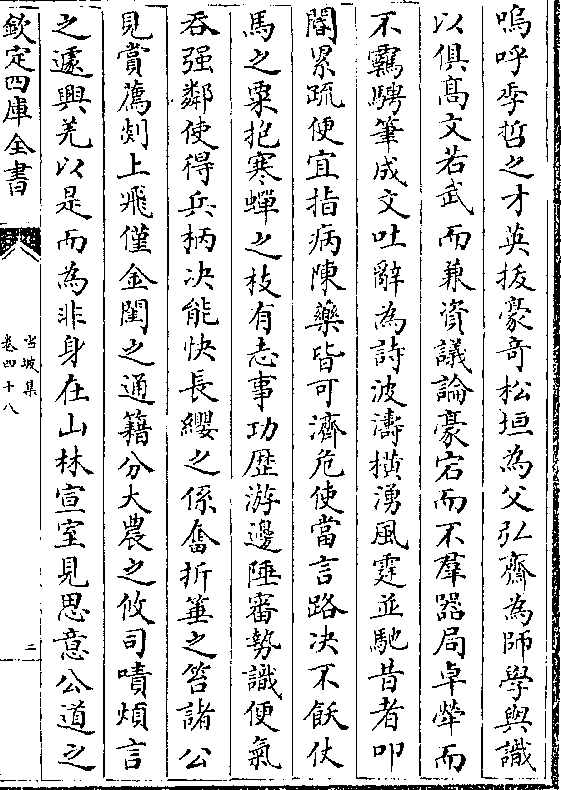 嗚呼季哲之才英拔豪竒松垣為父弘齋為師學與識
以俱髙文若武而兼資議論豪宕而不羣器局卓犖而
不羈騁筆成文吐辭為詩波濤横湧風霆並馳昔者叩
閽累疏便宜指病陳藥皆可濟危使當言路决不飫仗
馬之粟抱寒蟬之枝有志事功歴游邊陲審勢識便氣
吞强鄰使得兵柄决能快長纓之係奮折箠之笞諸公
見賞薦剡上飛僅金閨之通籍分大農之攸司嘖煩言
之遽興羌以是而為非身在山林宣室見思意公道之
欽定四庫全書
雪坡集
卷四十八
二